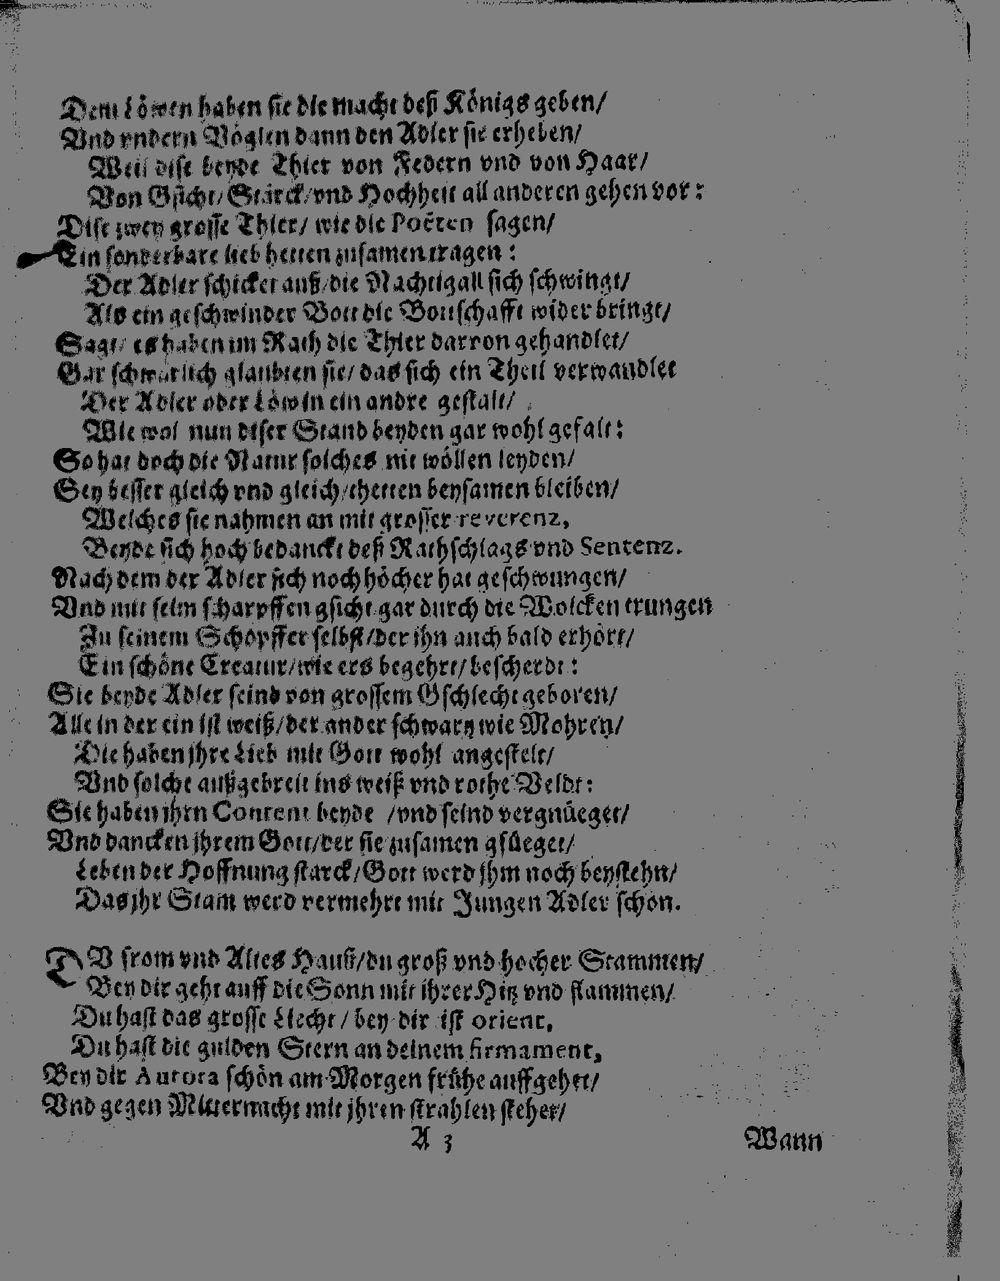 Dem Löwen haben sie die macht deß Königs geben/
Vnd vndern Vöglen dann den Adler sie erheben/
Weil dise beyde Thier von Federn vnd von Haar/
Von Gsicht/ Stärck/ vnd Hochheit all anderen gehen vor:
Dise zwey grosse Thier/ wie die Poëten sagen/
Ein sonderbare lieb hetten zusamen tragen:
Der Adler schicket auß/ die Nachtigall sich schwingt/
Als ein geschwinder Bott die Bottschafft wider bringt/
Sagt/ es haben im Rath die Thier darvon gehandlet/
Gar schwärlich glaubten sie/ das sich ein Theil verwandlet
Der Adler oder Löw in ein andre gestalt/
Wie wol nun diser Stand beyden gar wohl gefalt:
So hat doch die Natur solches nit wöllen leyden/
Sey besser gleich vnd gleich/ thetten beysamen bleiben/
Welches sie nahmen an mit grosser reverenz,
Beyde sich hoch bedanckt deß Rathschlags vnd Sentenz.
Nach dem der Adler sich noch höcher hat geschwungen/
Vnd mit seim scharpffen gsicht gar durch die Wolcken trungen
Zu seinem Schöpffer selbst/ der ihn auch bald erhört/
Ein schöne Creatur/ wie ers begehrt/ beschert:
Sie beyde Adler seind von grossem Gschlecht geboren/
Alle in der ein ist weiß/ der ander schwartz wie Mohren/
Die haben jhre Lieb mit Gott wohl angestelt/
Vnd solche außgebreit ins weiß vnd rothe Veldt:
Sie haben jhrn Content beyde / vnd seind vergnüeget/
Vnd dancken jhrem Gott/ der sie zusamen gfüeget/
Leben der Hoffnung starck/ Gott werd jhm noch beystehn/
Das jhr Stam werd vermehrt mit Jungen Adler schön.
DV from vnd Altes Hauß/ du groß vnd hocher Stammen/
Bey dir geht auff die Sonn mit ihrer Hitz vnd flammen/
Du hast das grosse Liecht / bey dir ist orient,
Du hast die gulden Stern an deinem firmament,
Bey dir Aurora schön am Morgen frühe auffgehet/
Vnd gegen Mitternacht mit jhren strahlen stehet/
A 3 Wann